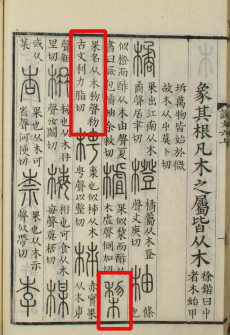 象其根凡木之屬皆从木 徐鍇曰屮者木始甲
坼萬物皆始於微故木从屮莫卜切
橘 果出江南从木矞聲居聿切 橙 橘屬从木登聲丈庚切 柚 條
似橙而酢从木由聲夏書曰厥包橘柚余救切 樝 果似棃而酢从木虘聲側加切 棃
果名从木𥝢聲𥝢古文利力脂切 梬 棗也似柹从木甹聲以整切 柹 赤實果从木𠂔
聲鉏里切 枏 梅也从木冄聲汝閻切 梅 枏也可食从木每聲莫桮切 楳
或从某 杏 果也从木可省聲何梗切 柰 果也从木示聲奴帶切 李